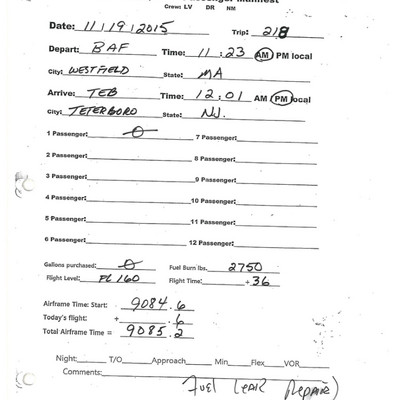 Passenger Manifest
Crew: LV DR NM
Date: 11/19/2015 Trip: 218
Depart: BAF Time: 11:23 AM PM local
City: WESTFIELD State: MA
Arrive: TEB Time: 12:01 AM PM local
City: TETERBORO State: NJ.
1 Passenger: 0 7 Passenger:
2 Passenger: 8 Passenger:
3 Passenger: 9 Passenger:
4 Passenger: 10 Passenger:
5 Passenger: 11 Passenger:
6 Passenger: 12 Passenger:
Gallons purchased: 0 Fuel Burn lbs. 2750
Flight Level: FL160 Flight Time: +36
Airframe Time: Start: 9084.6
Today's flight: + .6
Total Airframe Time = 9085.2
Night: T/O Approach Min Flex VOR
Comments:
FUEL LEAK REPAIR)